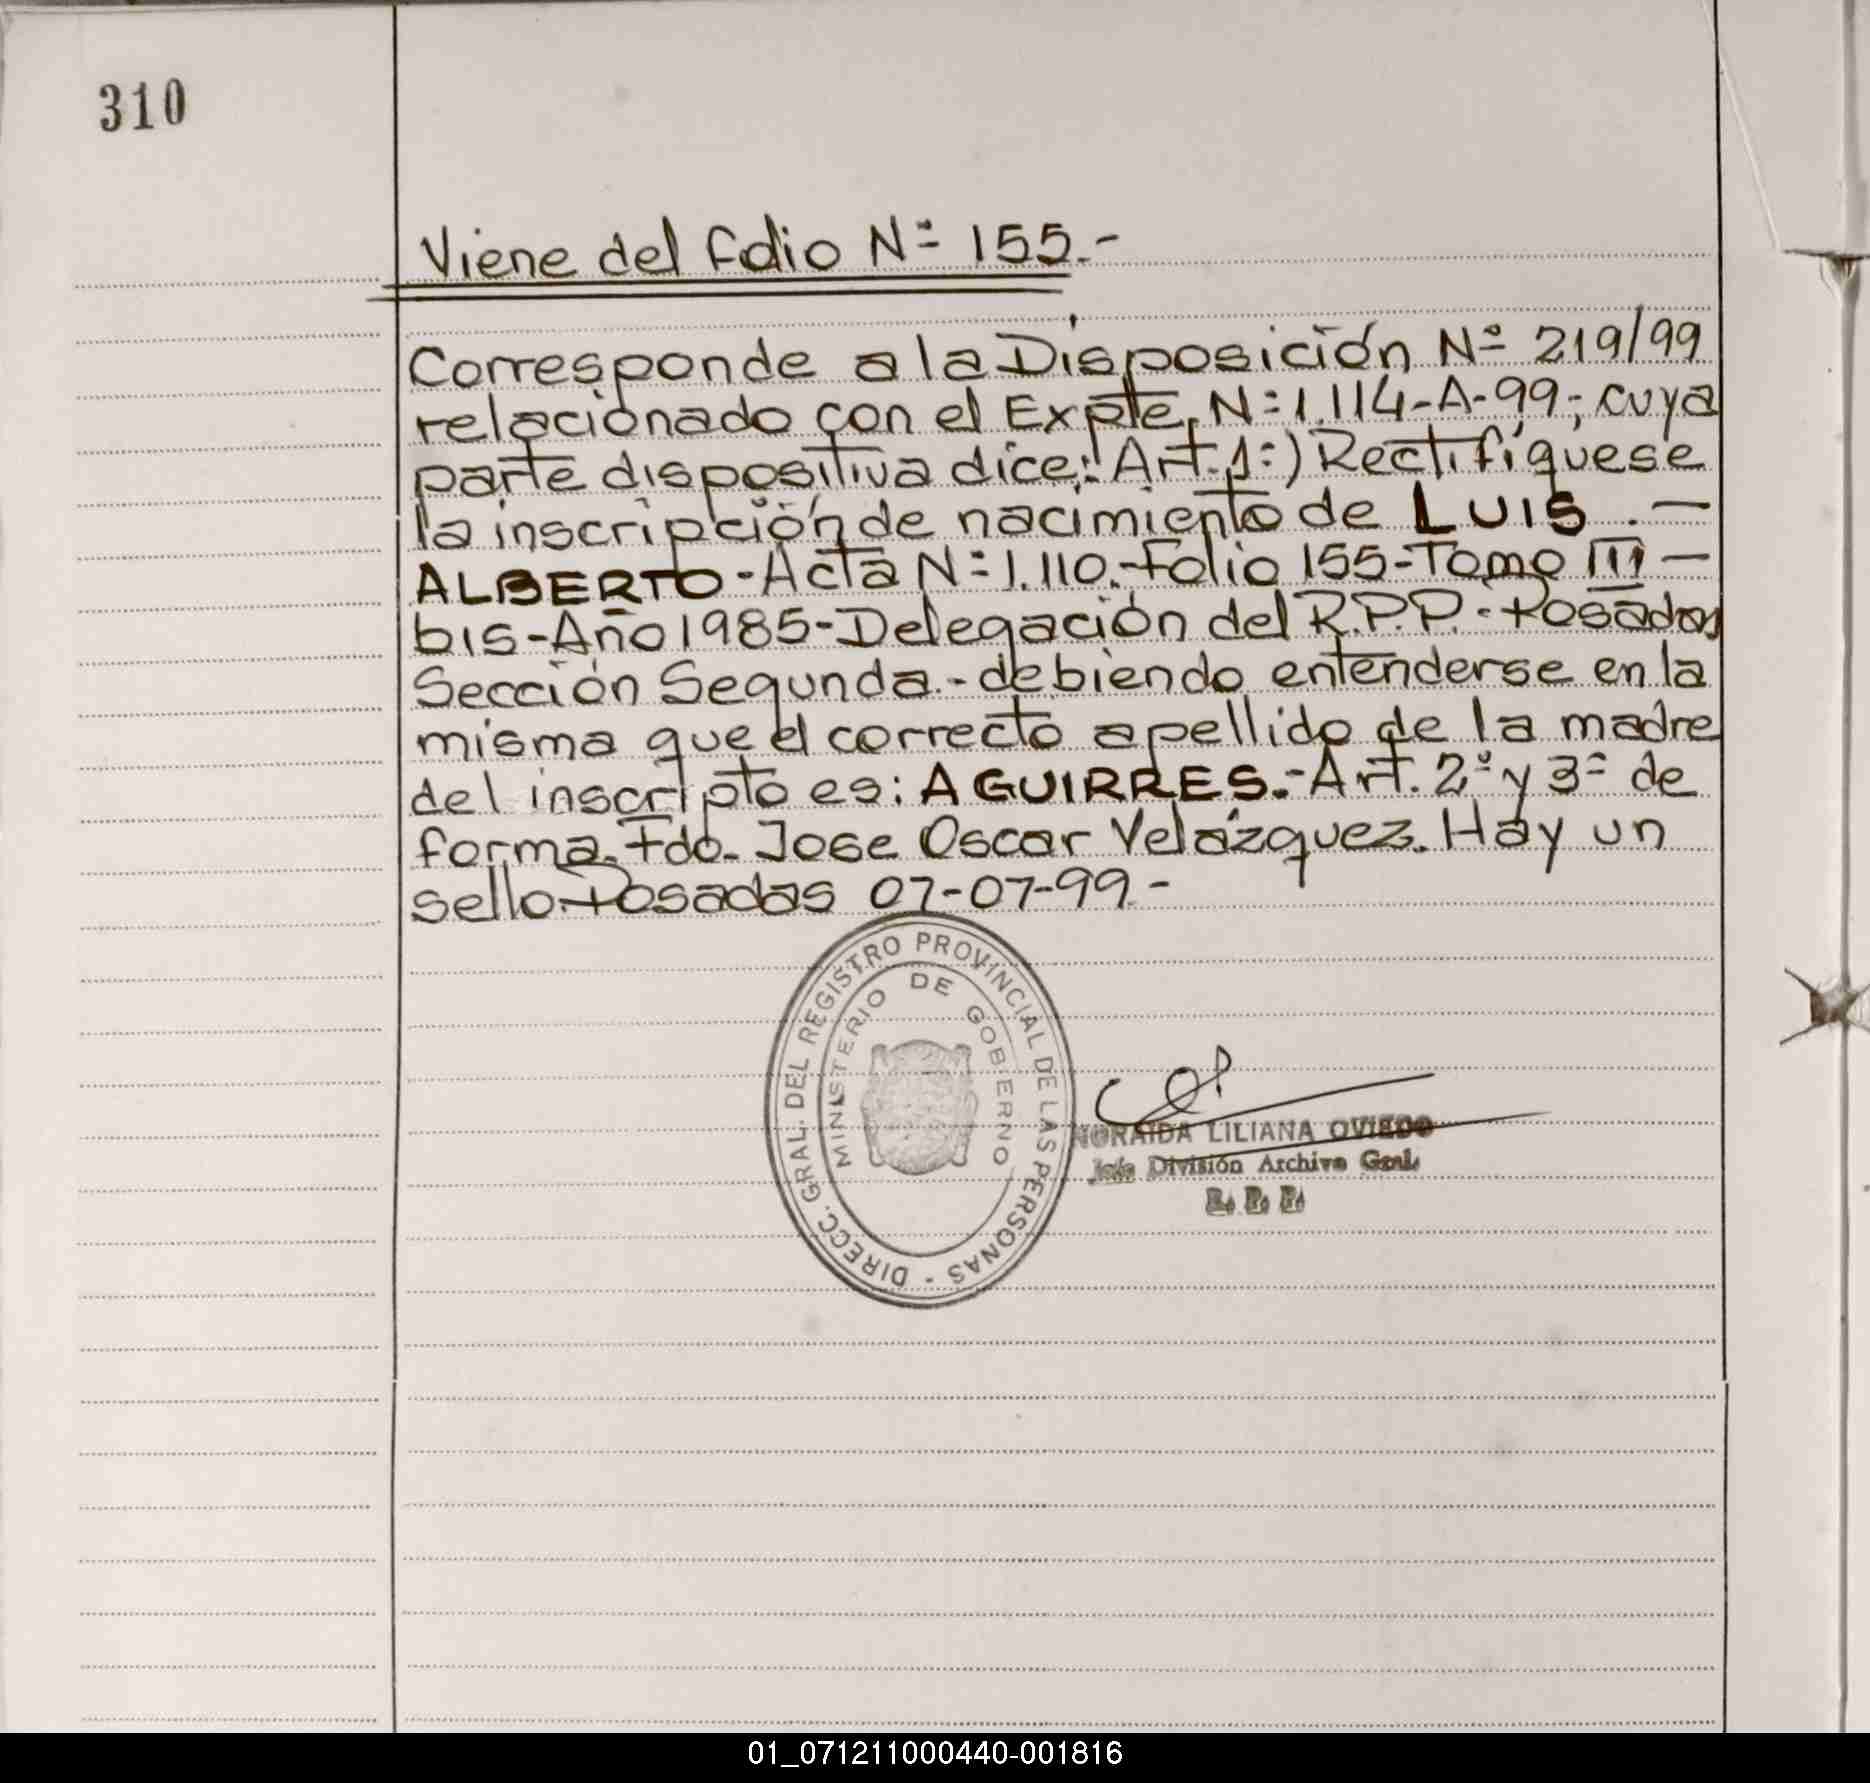 310
Viene del folio Nº 155.-
Corresponde a la Disposición Nº 219/99
relacionado con el Expte. Nº 1.114-A-99-; cuya
parte dispositiva dice: Art. 1º) Rectifíquese
la inscripción de nacimiento de LUIS.-
ALBERTO - Acta Nº 1.110.- Folio 155 - Tomo III -
bis - Año 1985 - Delegación del R.P.P. - Posadas
Sección Segunda.- debiendo entenderse en la
misma que el correcto apellido de la madre
del inscripto es: AGUIRRES.- Art. 2º y 3º de
forma. Fdo. Jose Oscar Velázquez. Hay un
sello. Posadas 07-07-99.-
DIRECC. GRAL. DEL REGISTRO PROVINCIAL DE LAS PERSONAS -
MINISTERIO DE GOBIERNO
NORAIDA LILIANA OVIEDO
Jefe División Archivo Gral.
R. P. P.
01_071211000440-001816